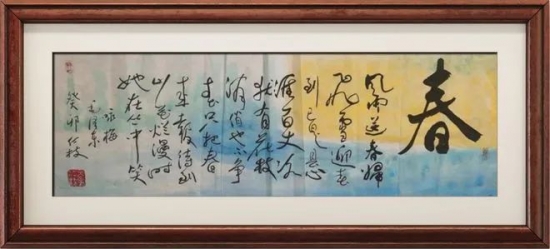 春
風雨送春歸
飛雪迎春
到已是懸
崖百丈冰
犹有花枝
俏俏也不争
春只把春
来报待到
山花烂漫時
她在丛中笑
咏梅
毛泽东
癸卯